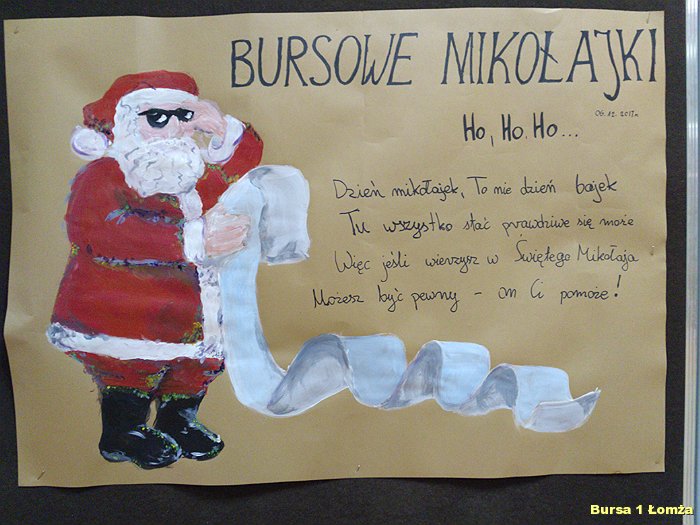 BURSOWE MIKOŁAJKI
Ho, Ho. Ho...
06.12.2017r.
Dzień mikołajek, To nie dzień bajek
Tu wszystko stać prawdziwe się może
Więc jeśli wierzysz w Świętego Mikołaja
Możesz być pewny - on Ci pomoże!
Bursa 1 Łomża